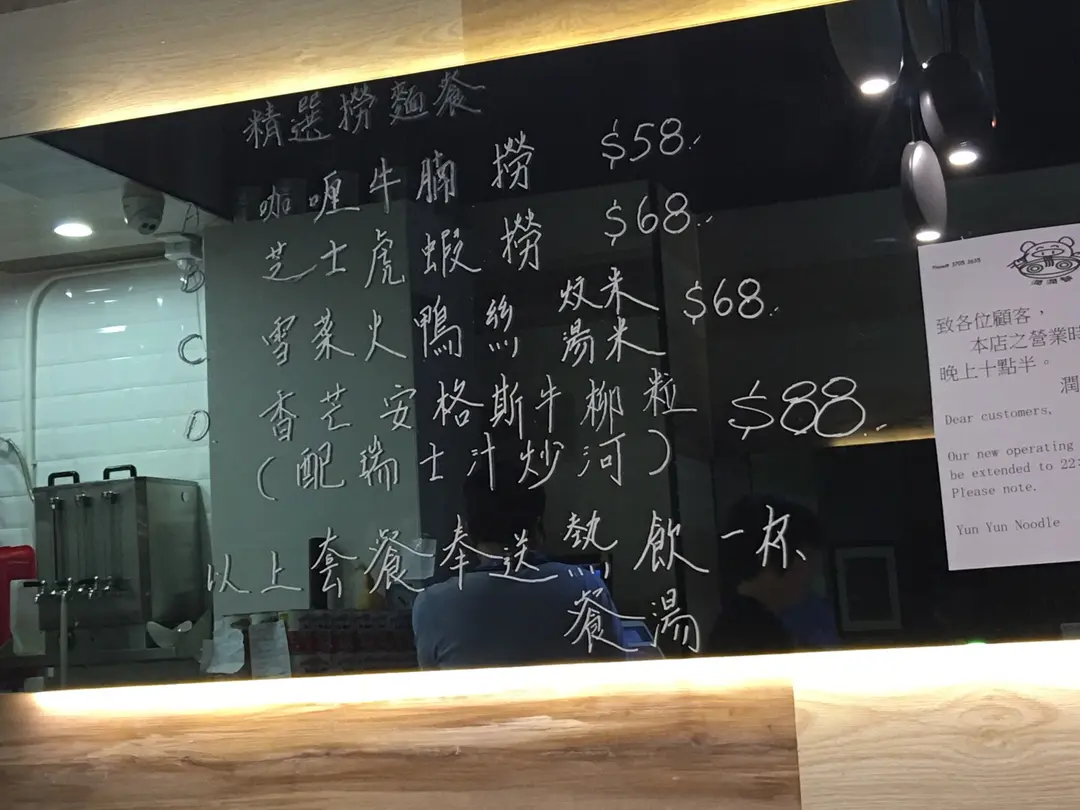 精選撈麵餐
A 咖喱牛腩撈 $58.
B 芝士虎蝦撈 $68.
C 雪菜火鴨絲 炆米 湯米 $68.
D. 香芒安格斯牛柳粒 $88
(配瑞士汁炒河)
以上套餐奉送熱飲一杯
餐湯
致各位顧客，
本店之營業時
晚上十點半。
潤
Dear customers,
Our new operating
be extended to 22:
Please note.
Yun Yun Noodle